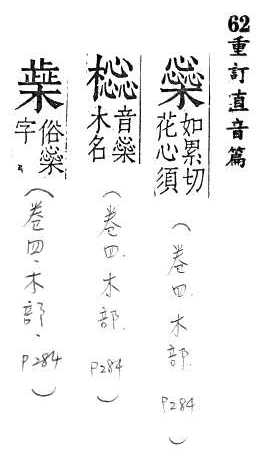 62重訂直音篇
橤 如累切
花心須
(卷四.木部.P284)
音橤
木名
(卷四.木部.P284)
俗橤
字
(卷四.木部.P284)